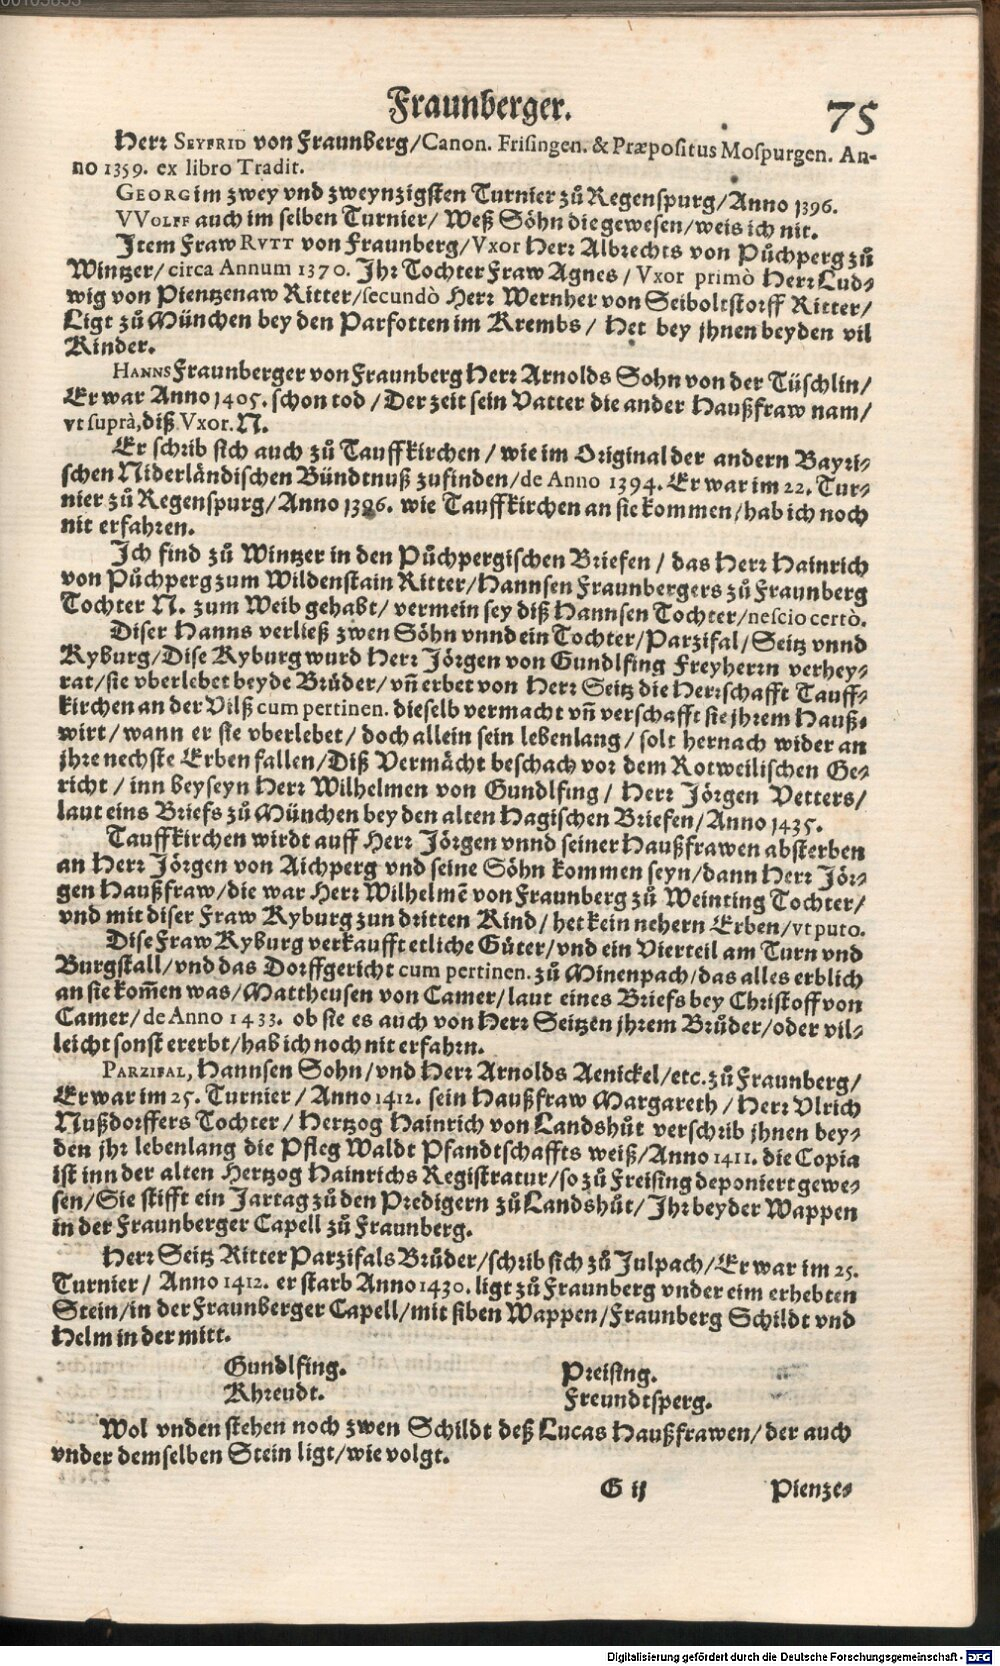 Fraunberger. 75
Herr SEYFRID von Fraunberg/Canon. Frisingen. & Præpositus Mospurgen. An-
no 1359. ex libro Tradit.
GEORG im zwey vnd zweynzigsten Turnier zů Regenspurg/Anno 1396.
VVOLFF auch im selben Turnier/ Weß Söhn die gewesen/weis ich nit.
Item Fraw RVTT von Fraunberg/Vxor Herr Albrechts von Půchperg zů
Wintzer/circa Annum 1370. Ihr Tochter Fraw Agnes/ Vxor primò Herr Lud-
wig von Pientzenaw Ritter/secundò Herr Wernher von Seiboltstorff Ritter/
Ligt zů München bey den Parfotten im Krembs/ Het bey jhnen beyden vil
Kinder.
HANNS Fraunberger von Fraunberg Herr Arnolds Sohn von der Tüschlin/
Er war Anno 1405. schon tod/Der zeit sein Vatter die ander Haußfraw nam/
vt suprà, diß Vxor. N.
Er schrib sich auch zů Tauffkirchen/ wie im Original der andern Bayri-
schen Niderländischen Bündtnuß zufinden/de Anno 1394. Er war im 22. Tur-
nier zů Regenspurg/Anno 1396. wie Tauffkirchen an sie kommen/hab ich noch
nit erfahren.
Ich find zů Wintzer in den Půchpergischen Briefen/ das Herr Hainrich
von Půchperg zum Wildenstain Ritter/Hannsen Fraunbergers zů Fraunberg
Tochter N. zum Weib gehabt/ vermein sey diß Hannsen Tochter/nescio certò.
Diser Hanns verließ zwen Söhn vnnd ein Tochter/Parzifal/Seitz vnnd
Ryburg/Dise Ryburg wurd Herr Jörgen von Gundlfing Freyherrn verhey-
rat/sie vberlebet beyde Brüder/vñ erbet von Herr Seitz die Herrschafft Tauff-
kirchen an der Vilß cum pertinen. dieselb vermacht vñ verschafft sie jhrem Hauß-
wirt/ wann er sie vberlebet/ doch allein sein lebenlang/ solt hernach wider an
jhre nechste Erben fallen/Diß Vermächt beschach vor dem Rotweilischen Ge-
richt/ inn beyseyn Herr Wilhelmen von Gundlfing/ Herr Jörgen Vetters/
laut eins Briefs zů München bey den alten Hagischen Briefen/Anno 1435.
Tauffkirchen wirdt auff Herr Jörgen vnnd seiner Haußfrawen absterben
an Herr Jörgen von Aichperg vnd seine Söhn kommen seyn/dann Herr Jör-
gen Haußfraw/die war Herr Wilhelmẽ von Fraunberg zů Weinting Tochter/
vnd mit diser Fraw Ryburg zun dritten Kind/ het kein nehern Erben/vt puto.
Dise Fraw Ryburg verkaufft etliche Güter/vnd ein Vierteil am Turn vnd
Burgstall/vnd das Dorffgericht cum pertinen. zů Minenpach/das alles erblich
an sie kom̃en was/Mattheusen von Camer/laut eines Briefs bey Christoff von
Camer/de Anno 1433. ob sie es auch von Herr Seitzen jhrem Brůder/oder vil-
leicht sonst ererbt/hab ich noch nit erfahrn.
PARZIFAL, Hannsen Sohn/vnd Herr Arnolds Aenickel/etc. zů Fraunberg/
Er war im 25. Turnier/Anno 1412. sein Haußfraw Margareth/Herr Vlrich
Nußdorffers Tochter/ Hertzog Hainrich von Landshůt verschrib jhnen bey-
den jhr lebenlang die Pfleg Waldt Pfandtschaffts weiß/Anno 1411. die Copia
ist inn der alten Hertzog Hainrichs Registratur/so zů Freising deponiert gewe-
sen/Sie stifft ein Jartag zů den Predigern zů Landshůt/ Ihr beyder Wappen
in der Fraunberger Capell zů Fraunberg.
Herr Seitz Ritter Parzifals Brůder/schrib sich zů Julpach/Er war im 25.
Turnier/ Anno 1412. er starb Anno 1430. ligt zů Fraunberg vnder eim erhebten
Stein/in der Fraunberger Capell/mit siben Wappen/Fraunberg Schildt vnd
Helm in der mitt.
Gundlfing. Preising.
Khreudt. Freundtsperg.
Wol vnden stehen noch zwen Schildt deß Lucas Haußfrawen/ der auch
vnder demselben Stein ligt/wie volgt.
G ij Pienze-
Digitalisierung gefördert durch die Deutsche Forschungsgemeinschaft - DFG